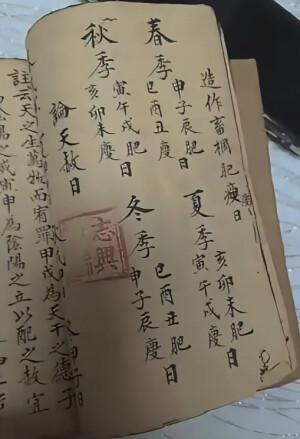 造作畜欄肥瘦日
春季
申子辰肥日
巳酉丑瘦
夏季
亥卯未肥日
寅午戌瘦
秋季
寅午戌肥日
亥卯未瘦
冬季
巳酉丑肥日
申子辰瘦
論天赦日
志興
註云天之生萬物而宥罪甲戊為天干之德子
陰陽之成寅申為陰陽之立以配之故宜